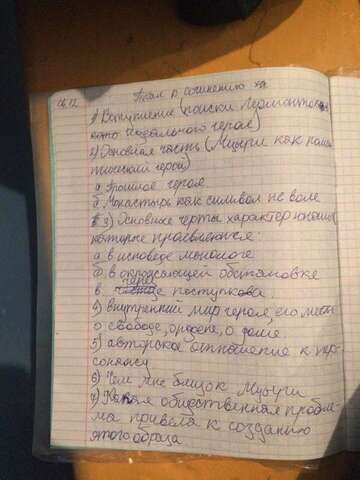 06.12
План к сочинению
1) Вступление (поиски Лермонтова
идеального героя)
2) Основная часть (Мцыри как роман
тический герой)
а Прошлое героя
б Монастырь как символ не воли
3) Основные черты характер юноши
которые проявляются:
а в исповеде монологе
б в окружающей обстановке
в через поступков
4) внутренний мир героя, его меты
о свободе, о родене, о доме
5) авторское отношение к пер-
сонажу
6) Чем мне близок Мцыри
7) Какая общественная пробле-
ма привела к созданию
этого образа